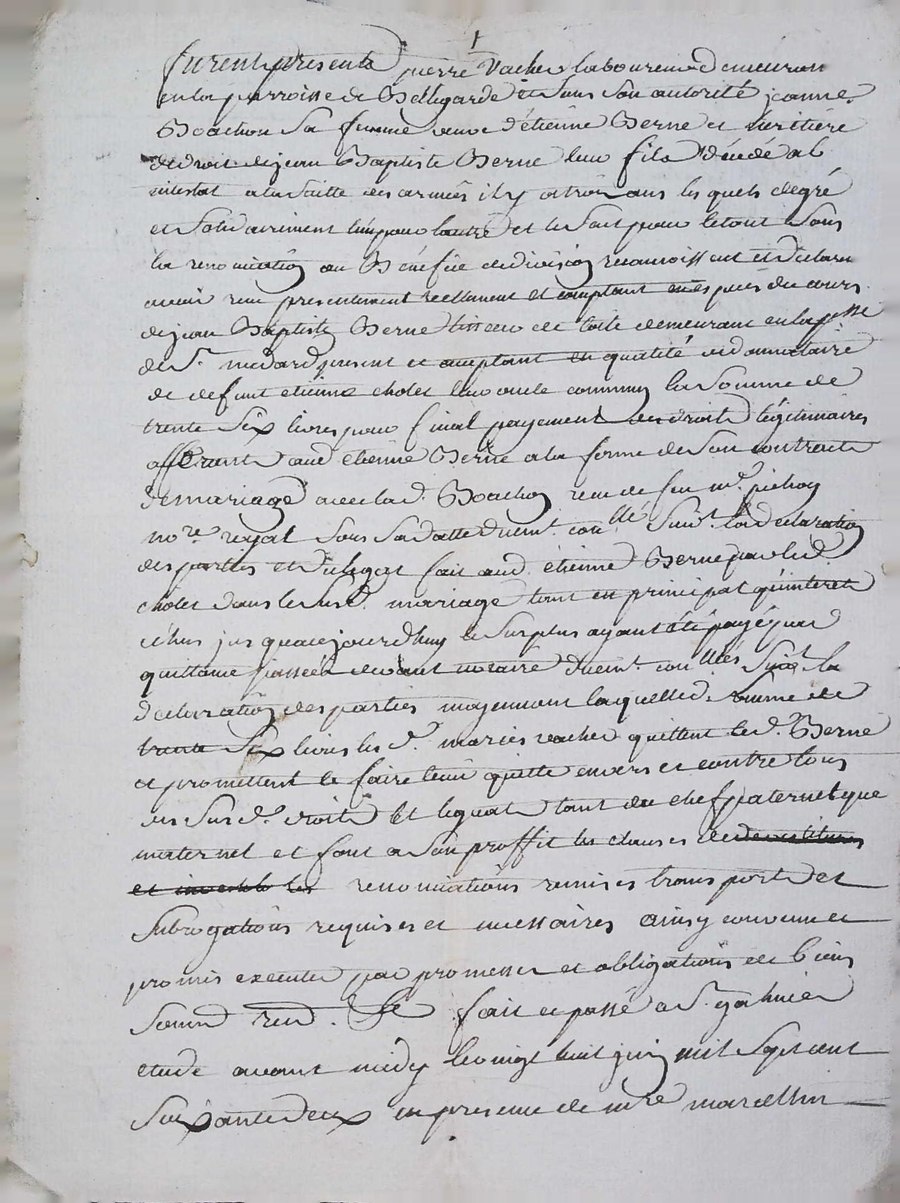 furent presents pierre Vacher laboureur demeurant
en la parroisse de Bellegarde et sous son autorité jeanne
Boachon sa femme veuve d'étienne Berne et heritière
de droit de jean Baptiste Berne leur fils décédé ab
intestat a la suitte des armées il y a trois ans lesquels de gré
et solidairement l'un pour lautre et le seul pour le tout sous
la renonciation au Bénéfice de division reconnoissent et déclarent
avoir reçu presentement reellement et comptant en espèces du cours
de jean Baptiste Berne tisseur de toile demeurant en la p.sse
de S.t medard present et acceptant en qualité de donnataire
de defunt etienne cholet leur oncle commun la somme de
trente six livres pour final payement des droits légitimaires
afferants aud. etienne Berne a la forme de son contrat
de mariage avec lad. Boachon reçu de feu m.e pichon
no.re royal sous sa datte duem.t con.llé suiv.t la declaration
des parties et du legat fait aud. étienne Berne par led.
cholet dans le susd. mariage tant en principal qu'interets
échus jusqua ce jourdhuy le surplus ayant été payé par
quittance passée devant notaire duem.t con.llée suiv.t la
declaration des parties moyennant laquelle d. somme de
trente six livres les d. mariés vacher quittent le d. Berne
et promettent le faire tenir quitte envers et contre tous
des susd. droits et legat tant du chef paternel que
maternel et font a son proffit les clauses de devestitures
et investit les renonciations remises transports et
subrogations requises et necessaires ainsy convenu et
promis executer par promesses et obligations de biens
soum. ren. &c fait et passé a S.t galmier
etude avant midy le vingt huit juin mil sept cent
soixante deux en presence de m.re marcellin